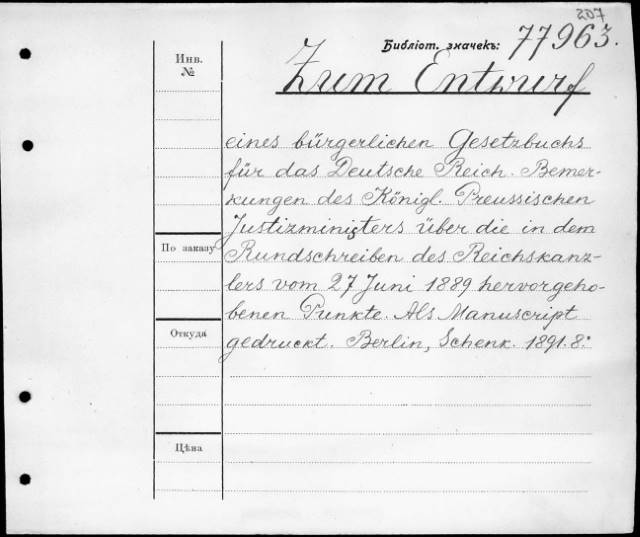 Библіот. значекъ: 77963.
Инв. №
Zum Entwurf
eines bürgerlichen Gesetzbuchs
für das Deutsche Reich. Bemer-
kungen des Königl. Preussischen
Justizministers über die in dem
По заказу
Rundschreiben des Reichskanz-
lers vom 27 Juni 1889 hervorgeho-
benen Punkte. Als Manuscript
Откуда
gedruckt. Berlin, Schenk. 1891. 8.
Цѣна